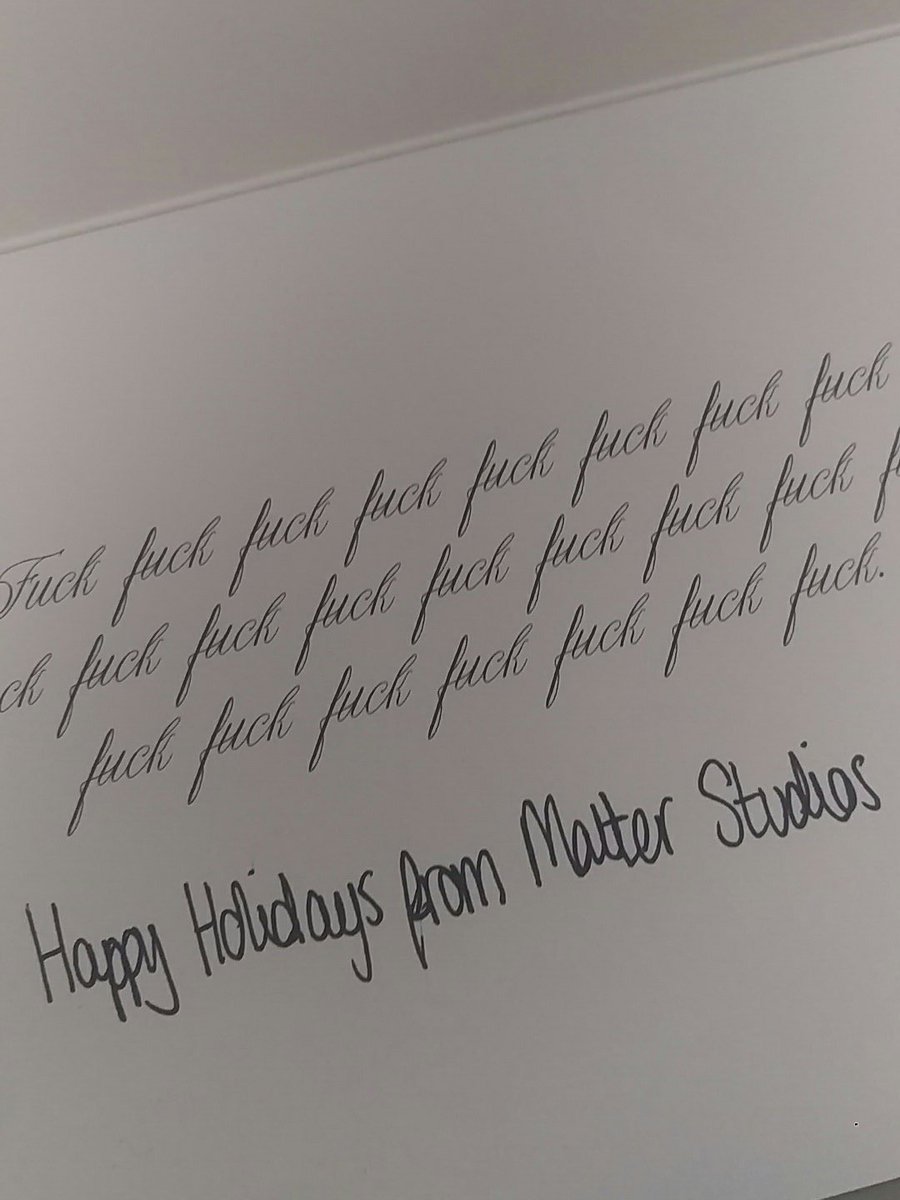 Fuck fuck fuck fuck fuck fuck fuck fuck
ck fuck fuck fuck fuck fuck fuck fuck
fuck fuck fuck fuck fuck fuck fuck.
Happy Holidays from Matter Studios